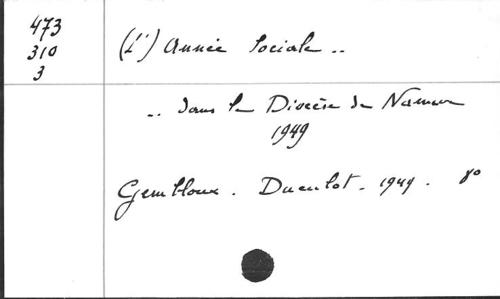 473
310
3
(L') Année Sociale ..
.. dans le Diocèse de Namur
1949
Gembloux. Duculot. 1949. 8°